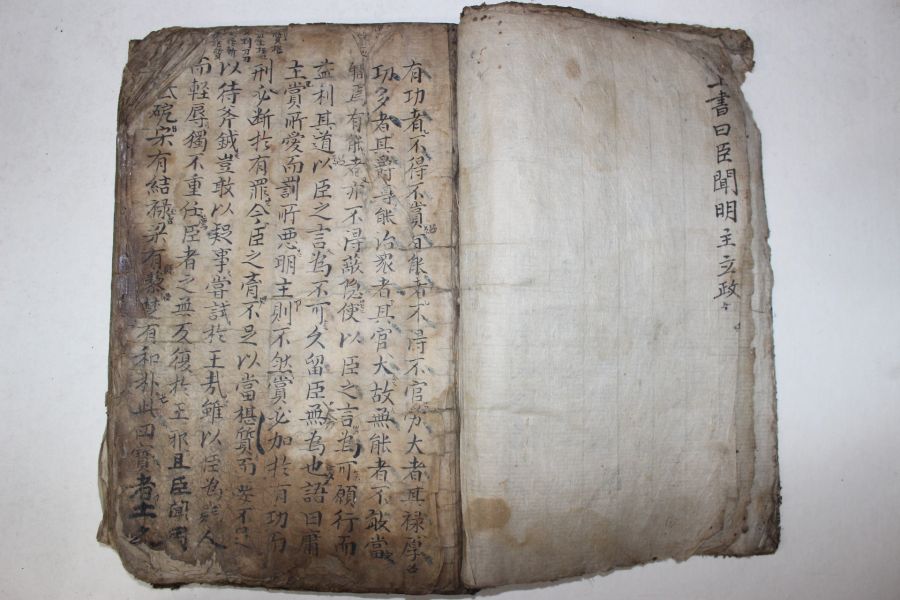 上書曰臣聞明主立政
有功者不得不賞有能者不得不官勞大者其祿厚
功多者其爵尊能治衆者其官大故無能者不敢當
職焉有能者亦不得蔽隐使以臣之言為可願行而
益利其道以臣之言為不可久留臣無為也語曰庸
主賞所愛而罰所惡明主則不然賞必加於有功而
刑必断於有罪今臣之胷不足以當椹質而要不足
以待斧鉞豈敢以疑事嘗試於王哉雖以臣為賤人
而輕辱獨不重任臣者之無反復於王邪且臣聞周
砨宋有結祿梁有楚有和朴此四寶者土之